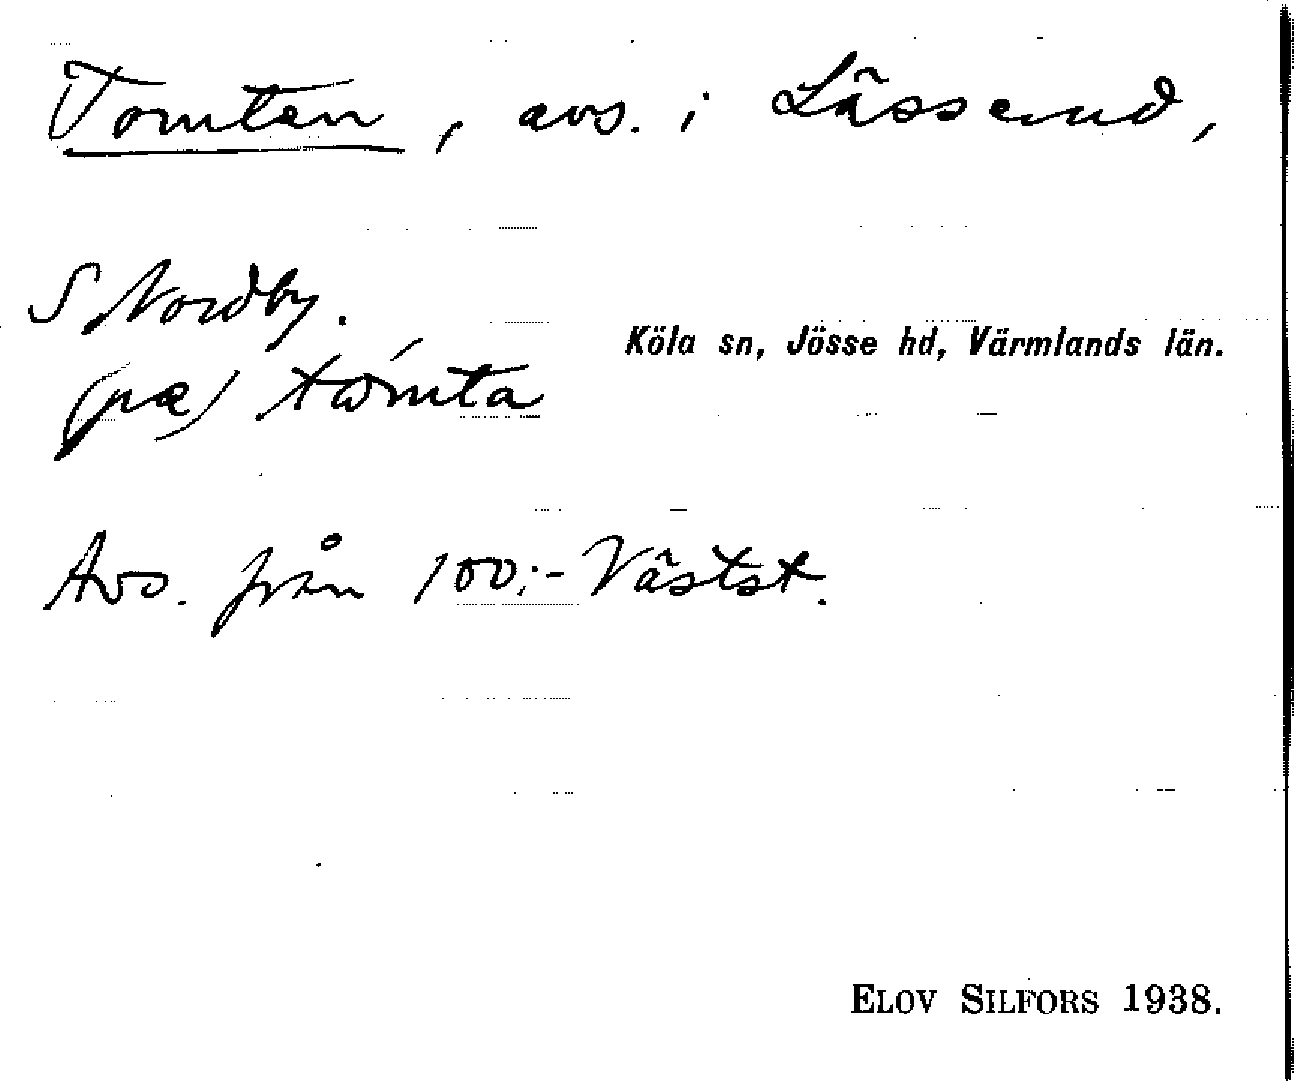 Tomten, avs. i Lässerud,
S Nordby.
Köla sn, Jösse hd, Värmlands län.
(pæ) tὼmta
Avs. från 100:- Västst.
ELOV SILFORS 1938.